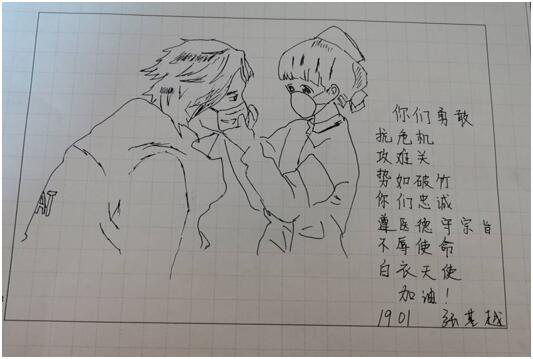 AT
你们勇敢
抗危机
攻难关
势如破竹
你们忠诚
遵医德守宗旨
不辱使命
白衣天使
加油！
1901 张基越